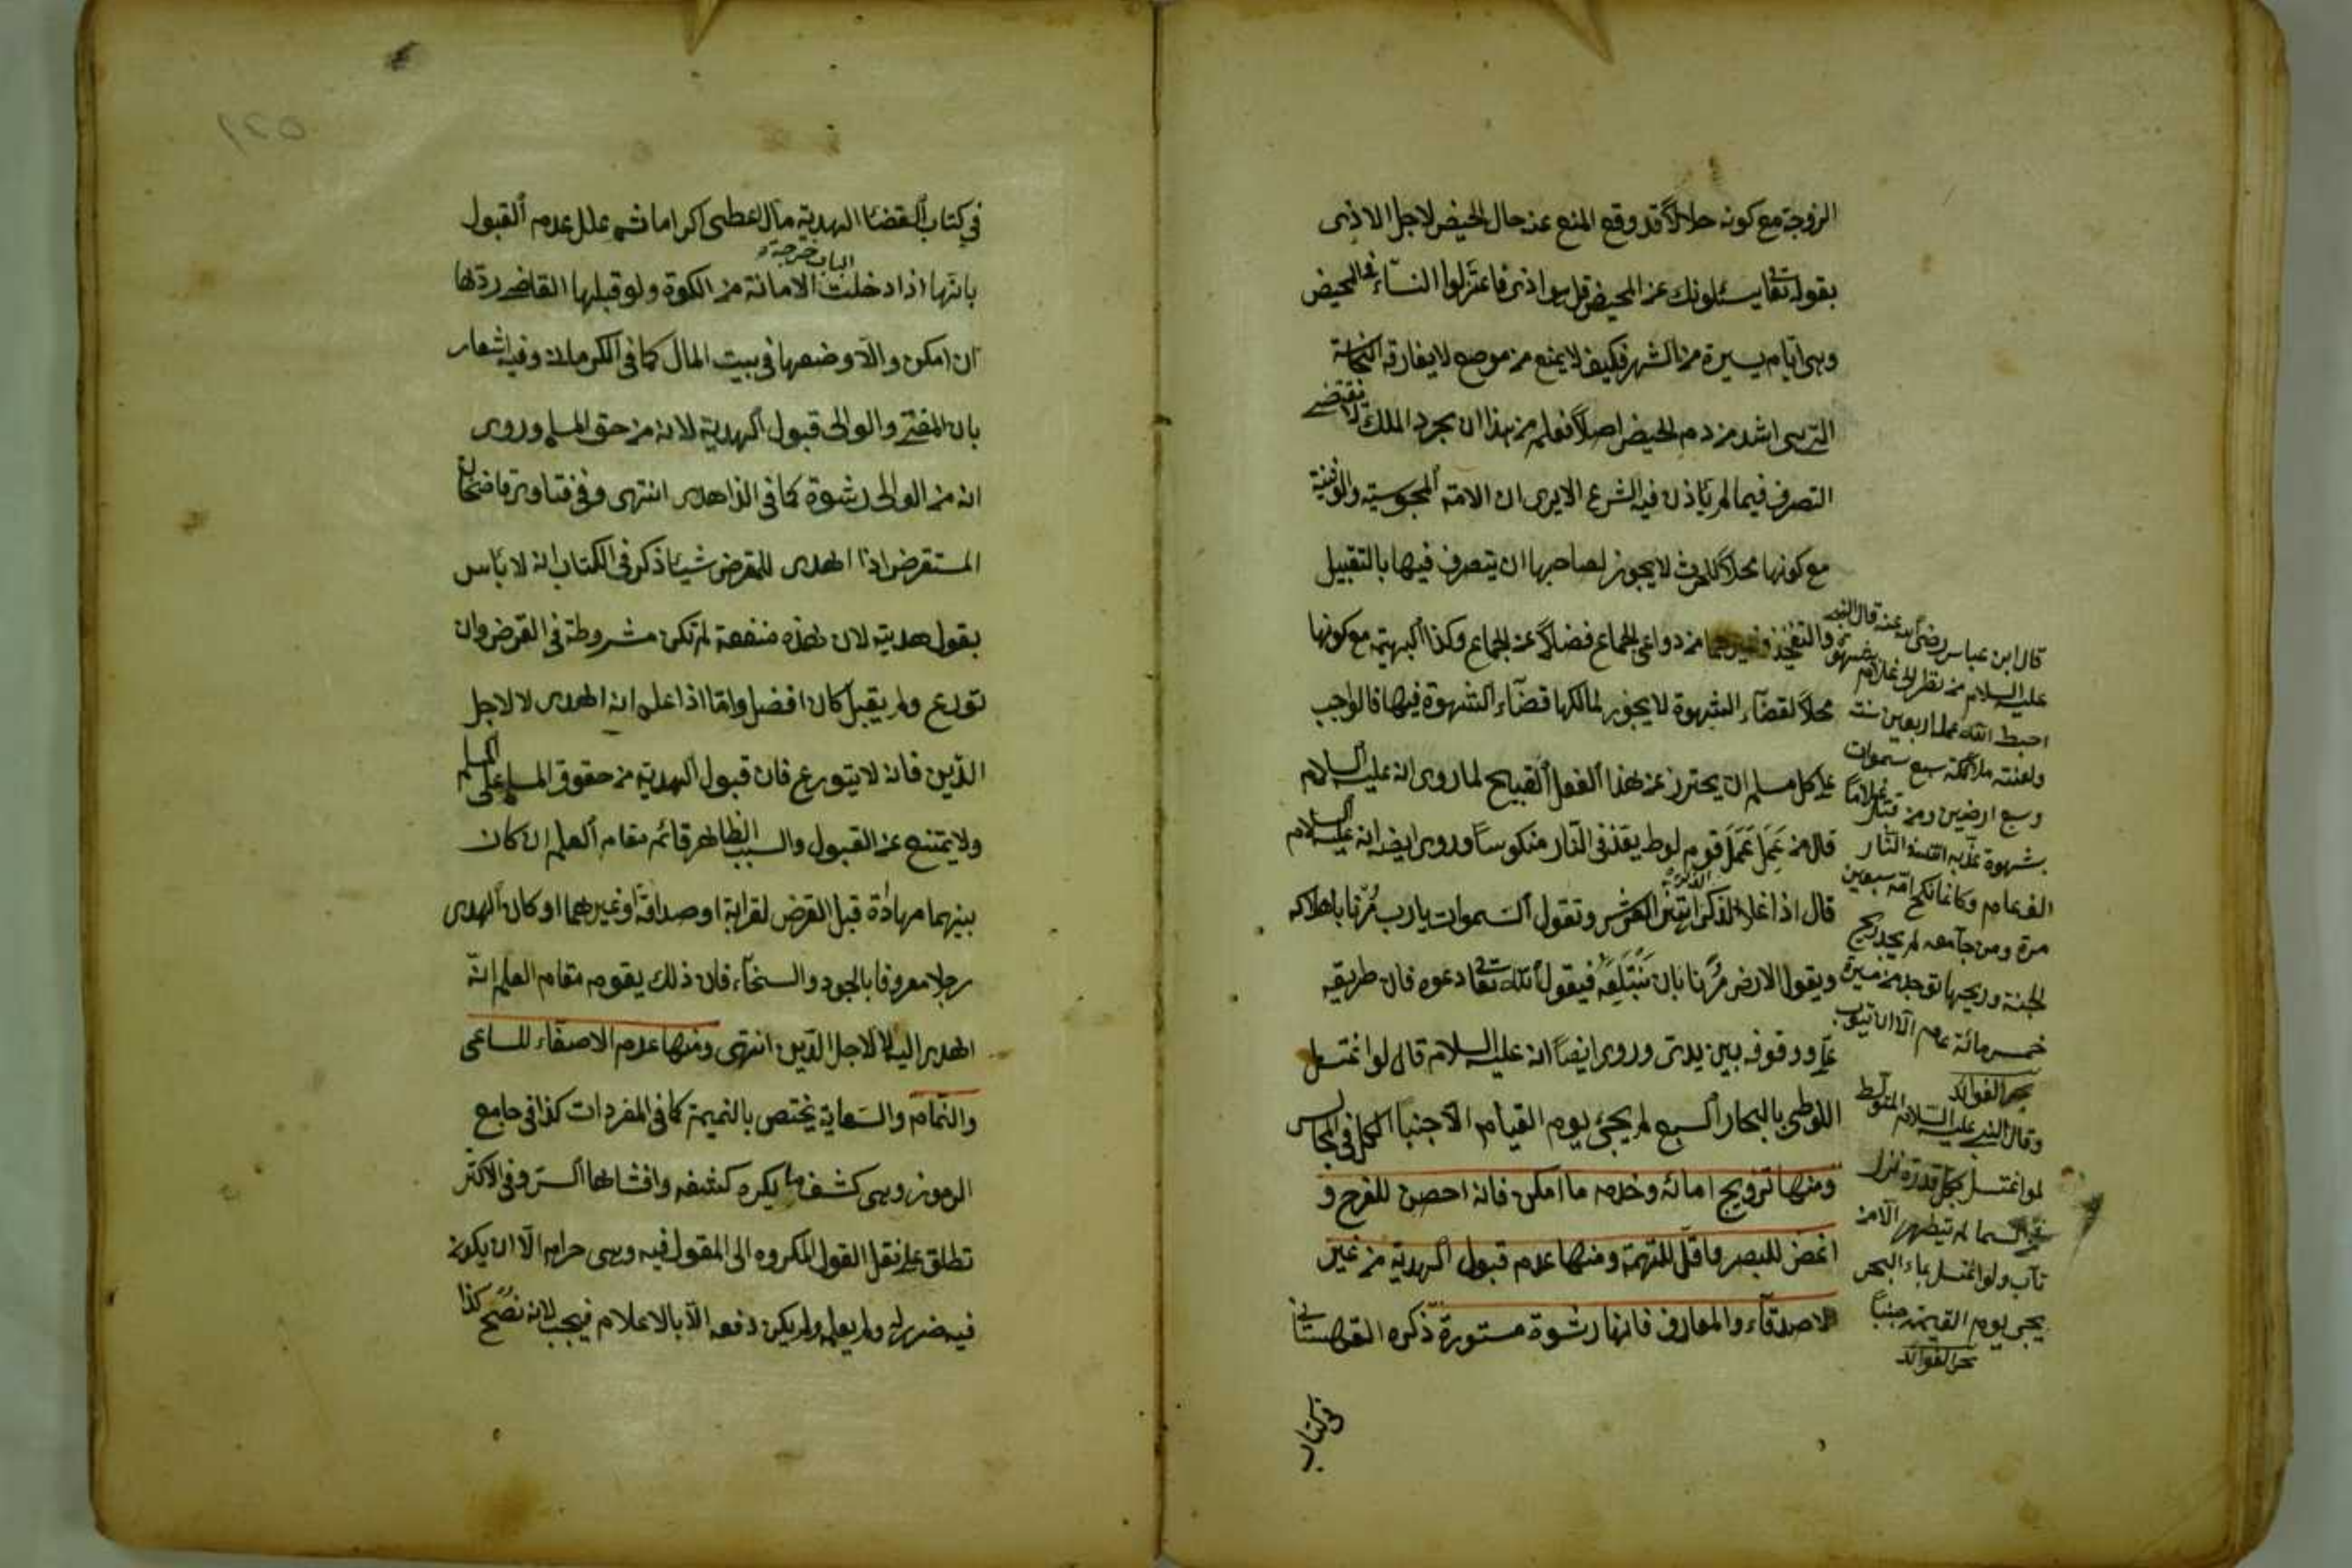 الزوجة مع كونه حلالاً قد وقع المنع عنه حال الحيض لاجل الاذى
بقوله تعا يسئلونك عن المحيض قل هو اذى فاعتزلوا النسآء فى المحيض
وهى ايام يسيرة من الشهر فكيف لا يمنع من موضع لا يفارقه النجاسة
التى هى اشد من دم الحيض اصلاً فعلم من هذا ان مجرد الملك لا يقتضى
التصرف فيما لم يأذن فيه الشرع الا يرى ان الامة المجوسية والوثنية
مع كونها محلاً للحرث لا يجوز لصاحبها ان يتصرف فيها بالتقبيل
والتفخيذ وغيرهما من دواعى الجماع فضلاً عن الجماع وكذا البهيمة مع كونها
محلاً لقضآء الشهوة لا يجوز لمالكها قضآء الشهوة فيها فالواجب
على كل مسلم ان يحترز عن هذا الفعل القبيح لما روى انه عليه السلام
قال من عَمِلَ عَمَلَ قوم لوط يقذف فى النار منكوساً وروى ايضا انه عليه السلام
قال اذا علا الذكر الذكر اهتز العرش وتقول السموات يا رب مُرنا باهلاكه
ويقول الارض مُرنا بان نَبْتَلِعَهُ فيقول الله تعا دعوه فان طريقه
علىّ ووقوفه بين يدىّ وروى ايضاً انه عليه السلام قال لو اغتسل
اللوطى بالبحار السبع لم يجئ يوم القيام الا جنبا الكل فى المجالس
ومنها تزويج امائه وخدمه ما امكن فانه احصن للفرج و
اغض للبصر واقل للتهمة ومنها عدم قبول الهدية من غير
الاصدقآء والمعارف فانها رشوة مستورة ذكره القهستانى
فى كتاب
قال ابن عباس رضى الله عنه قال النبى
عليه السلام من نظر الى غلام بشهوة
احبط الله عمله اربعين سنة
ولعنته ملائكة سبع سموات
وسبع ارضين ومن قبّل غلاماً
بشهوة عذبه الله فى النار
الف عام وكانما نكح امه سبعين
مرة ومن جامعه لم يجد ريح
الجنة وريحها توجد من مسيرة
خمسمائة عام الا ان يتوب
بحر الفوائد
وقال النبى عليه السلام المتلوط
لو اغتسل بكل قطرة نزل
من السما لم يتطهر الا من
تاب ولو اغتسل بماء البحر
يجى يوم القيمة جنباً
بحر الفوائد
فى كتاب القضا الهدية مال يعطى اكراما ثم علل عدم القبول
بانها اذا دخلت الباب خرجت الامانة من الكوة ولو قبلها القاضى ردّها
ان امكن والّا وضعها فى بيت المال كما فى الكرمانى وفيه اشعار
بان المفتى والوالى قبول الهدية لانه من حق المسلم وروى
انه من الوالى رشوة كما فى الزاهدى انتهى وفى فتاوى قاضيخان
المستقرض اذا اهدى للمقرض شيئا ذكر فى الكتاب انه لا بأس
بقول هديته لان هذه منفعة لم تكن مشروطة فى القرض وان
تورع ولم يقبل كان افضل وامّا اذا علم انه اهدى لا لاجل
الدّين فانه لا يتورع فان قبول الهدية من حقوق المسلم على المسلم
ولا يمتنع عن القبول والسبب الظاهر قائم مقام العلم ان كان
بينهما مهاداة قبل القرض لقرابة او صداقة او غيرهما او كان المهدى
رجلا معروفا بالجود والسخآء فان ذلك يقوم مقام العلم انه
اهدى اليه لا لاجل الدّين انتهى ومنها عدم الاصغاء للساعى
والنمّام والسّعاية يختص بالنميمة كما فى المفردات كذا فى جامع
الرموز وهى كشف ما يكره كشفه وافشاءها السرّ وفى الاكثر
تطلق على نقل القول المكروه الى المقول فيه وهى حرام الّا ان يكون
فيه ضرر له ولم يعلم ولم يكن دفعه الّا بالاعلام فيجب لانه نصح كذا